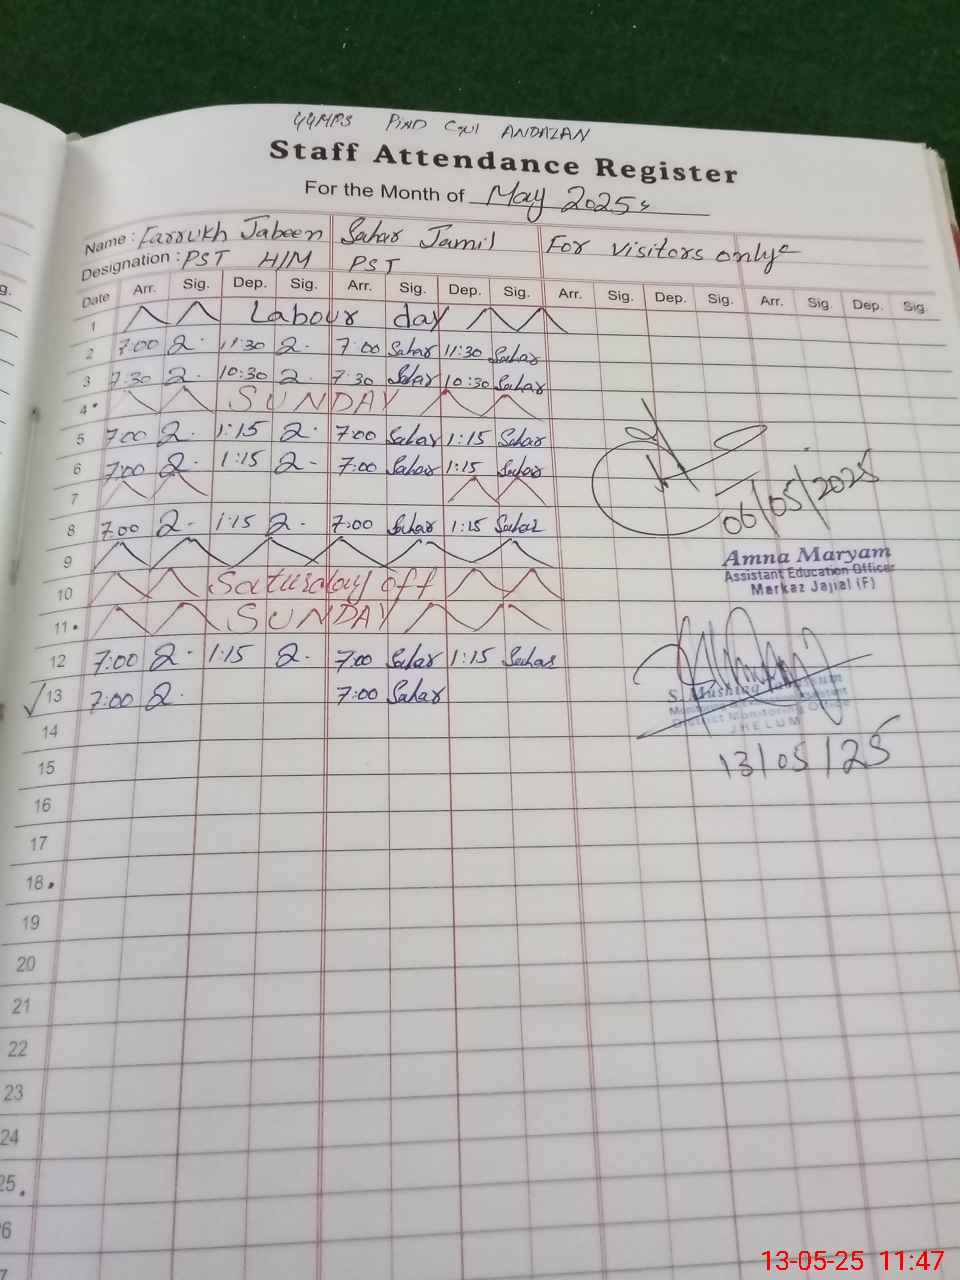 Staff Attendance Register
For the Month of May 2025
Name : Farrukh Jabeen Sahar Jamil For visitors only
Designation : PST H/M PST
Date Arr. Sig. Dep. Sig. Arr. Sig. Dep. Sig. Arr. Sig. Dep. Sig. Arr. Sig. Dep. Sig.
1 Labour day
2 7:00 11:30 7:00 Sahar 11:30 Sahar
3 7:30 10:30 7:30 Sahar 10:30 Sahar
4 SUNDAY
5 7:00 1:15 7:00 Sahar 1:15 Sahar
6 7:00 1:15 7:00 Sahar 1:15 Sahar
06/05/2025
7
8 7:00 1:15 7:00 Sahar 1:15 Sahar
Amna Maryam
Assistant Education Officer
Markaz Jajial (F)
9
10 Saturday off
11 SUNDAY
12 7:00 1:15 7:00 Sahar 1:15 Sahar
13 7:00 7:00 Sahar
District Monitoring Office
JHELUM
13/05/25
14
15
16
17
18
19
20
21
22
23
24
25
13-05-25 11:47